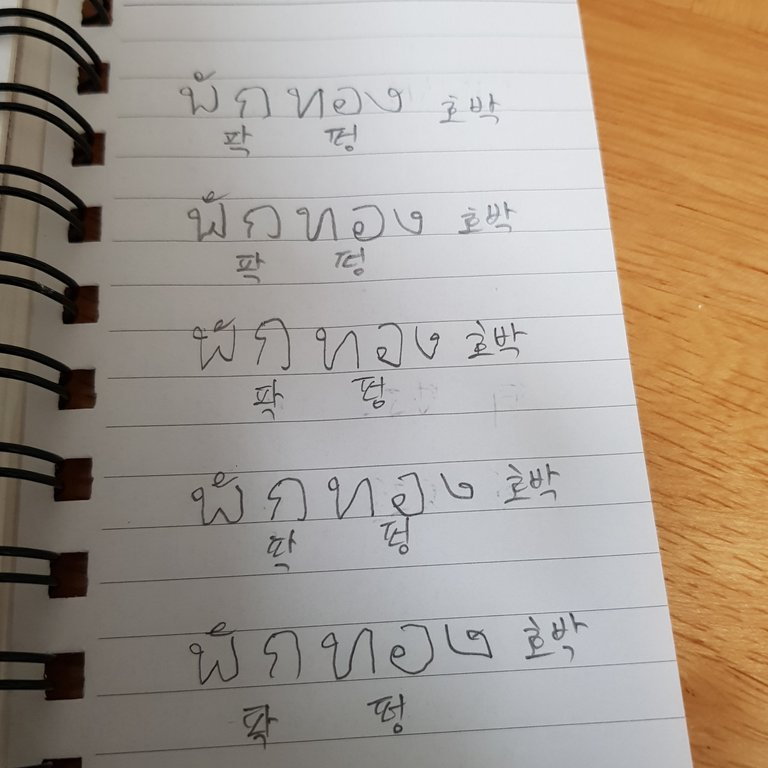 ฟักทอง 호박
팍 텅
ฟักทอง 호박
팍 텅
ฟักทอง 호박
팍 텅
ฟักทอง 호박
팍 텅
ฟักทอง 호박
팍 텅